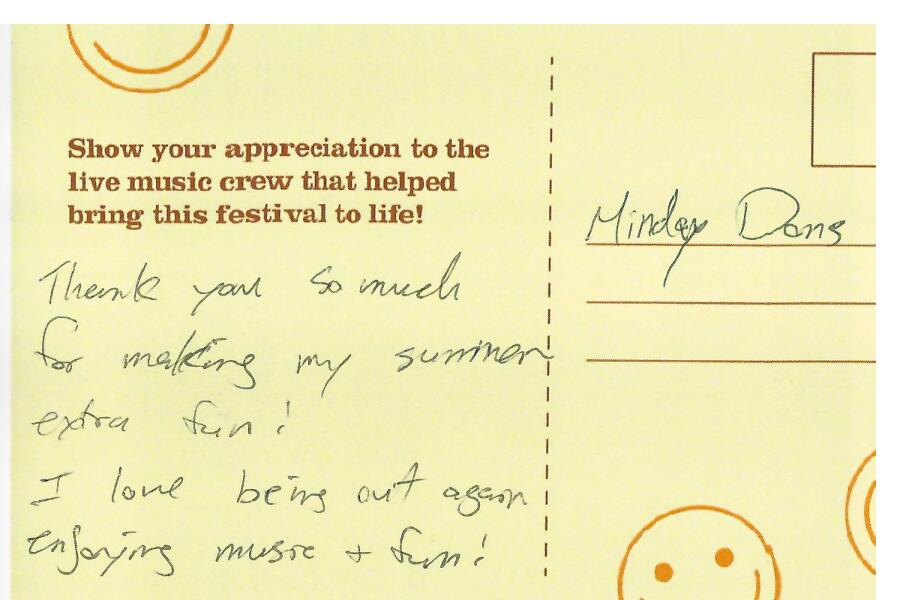 Show your appreciation to the
live music crew that helped
bring this festival to life!
Thank you so much
for making my summer
extra fun!
I love being out again
enjoying music + fun!